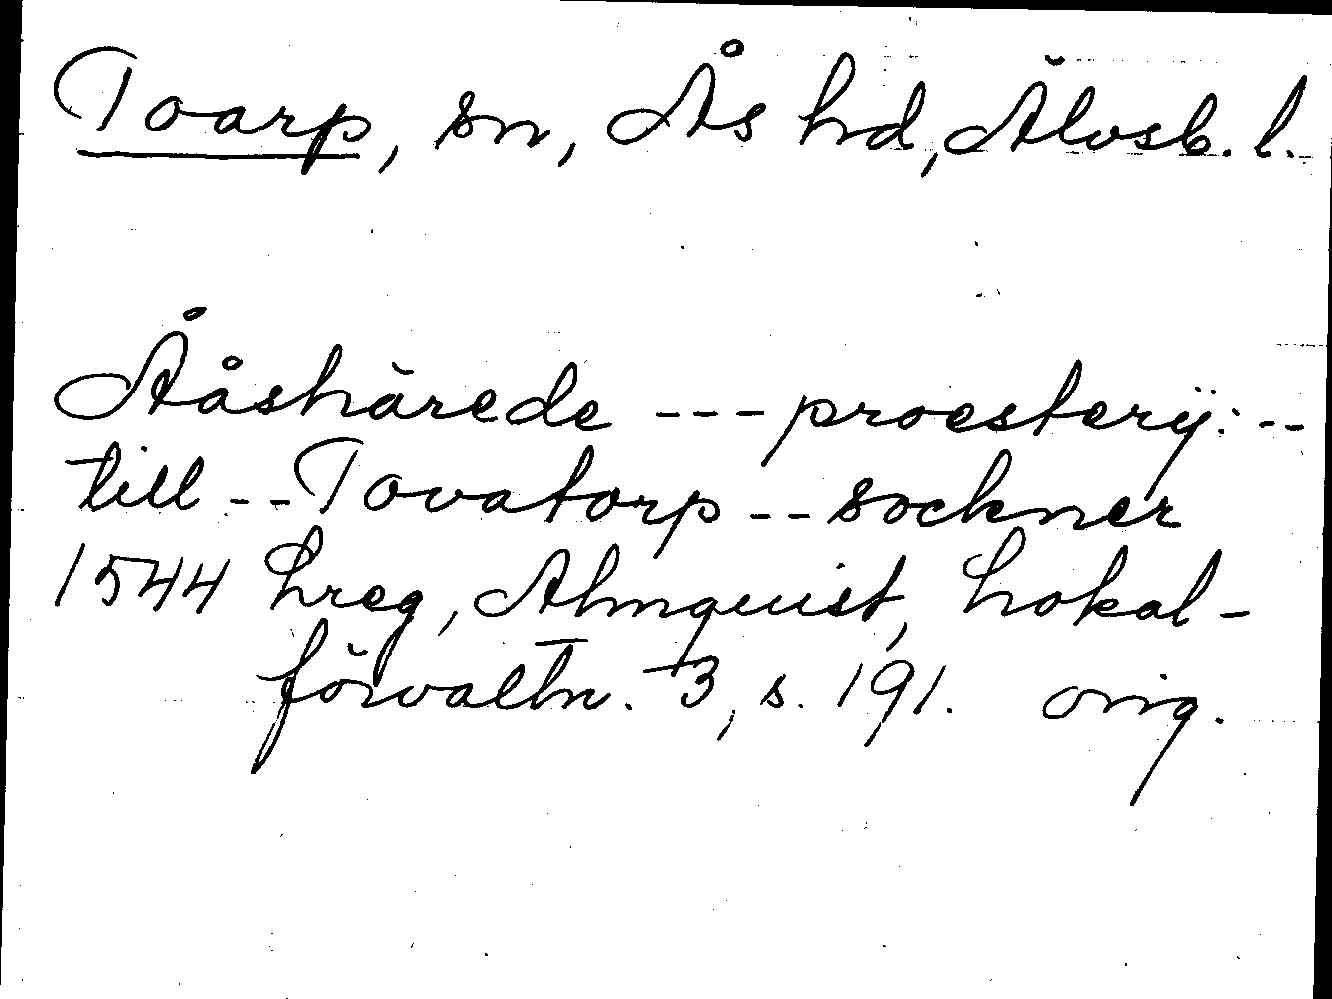 Toarp, sn, Ås hd, Älvsb. l.
Ååshärede --- proesterij: --
till -- Tovatorp -- sockner
1544 Lreg, Almquist, Lokal-
förvaltn. 3, s. 191. orig.